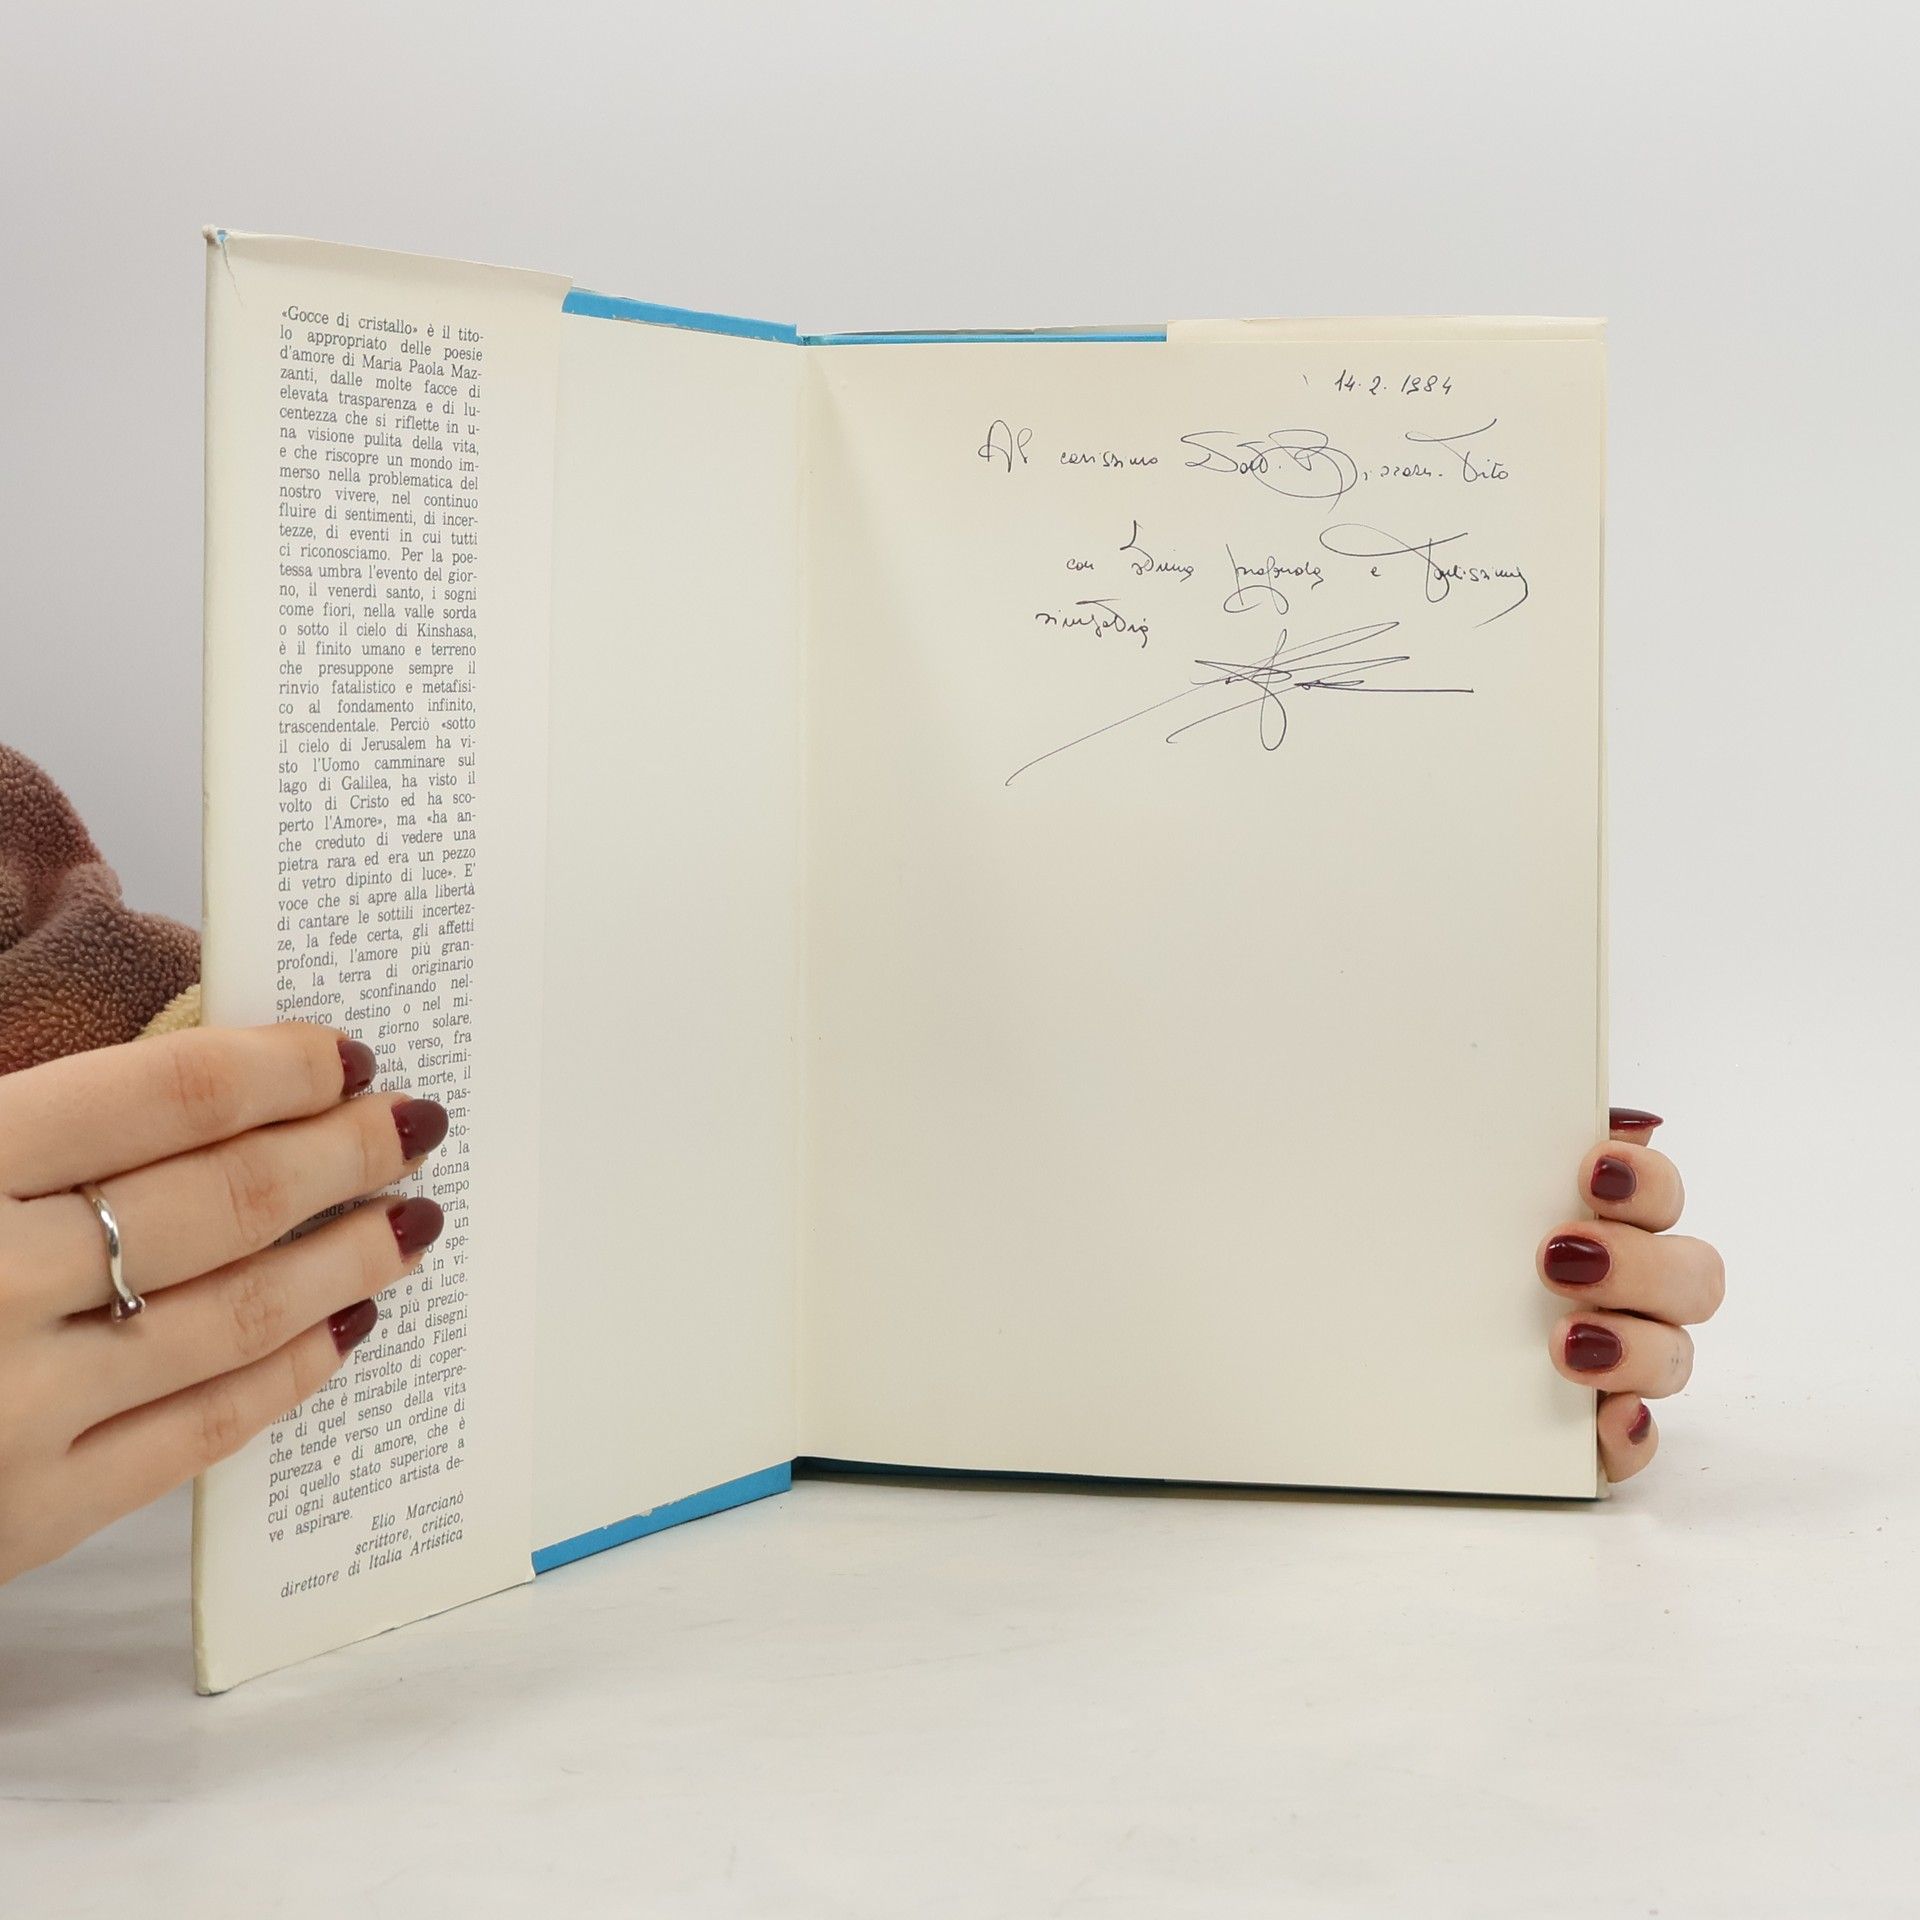 «Gocce di cristallo» è il tito-
lo appropriato delle poesie
d'amore di Maria Paola Maz-
zanti, dalle molte facce di
elevata trasparenza e di lu-
centezza che si riflette in u-
na visione pulita della vita,
e che riscopre un mondo im-
merso nella problematica del
nostro vivere, nel continuo
fluire di sentimenti, di incer-
tezze, di eventi in cui tutti
ci riconosciamo. Per la poe-
tessa umbra l'evento del gior-
no, il venerdì santo, i sogni
come fiori, nella valle sorda
o sotto il cielo di Kinshasa,
è il finito umano e terreno
che presuppone sempre il
rinvio fatalistico e metafisi-
co al fondamento infinito,
trascendentale. Perciò «sotto
il cielo di Jerusalem ha vi-
sto l'Uomo camminare sul
lago di Galilea, ha visto il
volto di Cristo ed ha sco-
perto l'Amore», ma «ha an-
che creduto di vedere una
pietra rara ed era un pezzo
di vetro dipinto di luce». E'
voce che si apre alla libertà
di cantare le sottili incertez-
ze, la fede certa, gli affetti
profondi, l'amore più gran-
de, la terra di originario
splendore, sconfinando nel-
l'atavico destino o nel mi-
un giorno solare.
suo verso, fra
discrimi-
dalla morte, il
tra pas-
è la
di donna
il tempo
un
spe-
in vi-
e di luce.
più prezio-
e dai disegni
Ferdinando Fileni
risvolto di coper-
che è mirabile interpre-
te di quel senso della vita
che tende verso un ordine di
purezza e di amore, che è
poi quello stato superiore a
cui ogni autentico artista de-
ve aspirare.
Elio Marcianò
scrittore, critico,
direttore di Italia Artistica
14.2.1984
Al carissimo Dott. Vito
con stima profonda e
simpatia